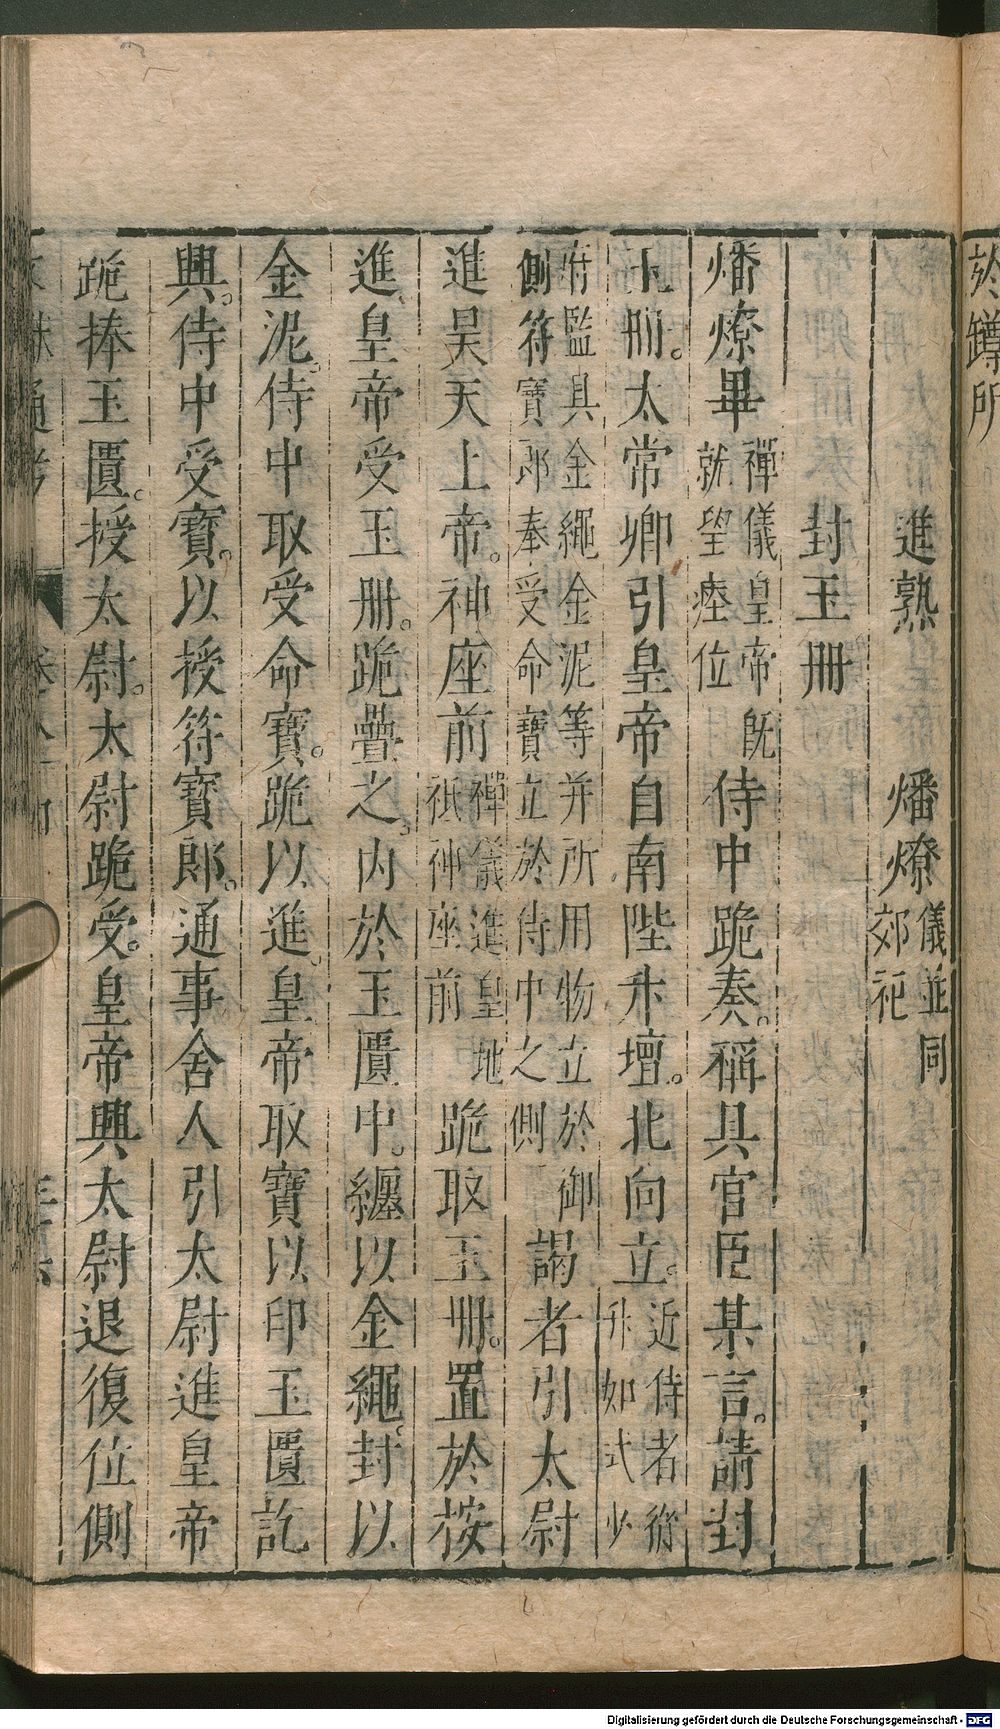 於罇所
進熟　燔燎儀並同郊祀
封玉冊
燔燎畢禪儀皇帝既就望瘞位侍中跪奏。稱具官臣某言。請封
玉冊。太常卿引皇帝自南陛升壇。北向立。近侍者從升如式少
府監具金繩金泥等并所用物立於御側符寶郎奉受命寶立於侍中之側謁者引太尉
進昊天上帝。神座前禪儀進皇地祇神座前跪取玉冊。置於桉
進、皇帝受玉冊。跪疊之、內於玉匱中。纏以金繩、封以
金泥。侍中取受命寶。跪以進、皇帝取寶以印玉匱訖
興。侍中受寶。以授符寶郎。通事舍人引太尉進皇帝
跪捧玉匱。授太尉。太尉跪受。皇帝興太尉退復位側
文獻通考
Digitalisierung gefördert durch die Deutsche Forschungsgemeinschaft - DFG